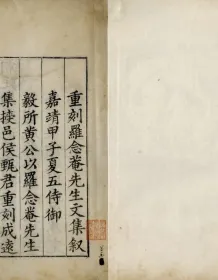 重刻羅念菴先生文集叙
嘉靖甲子夏五侍御
毅所黄公以羅念菴先生
集授邑侯甄君重刻成逺